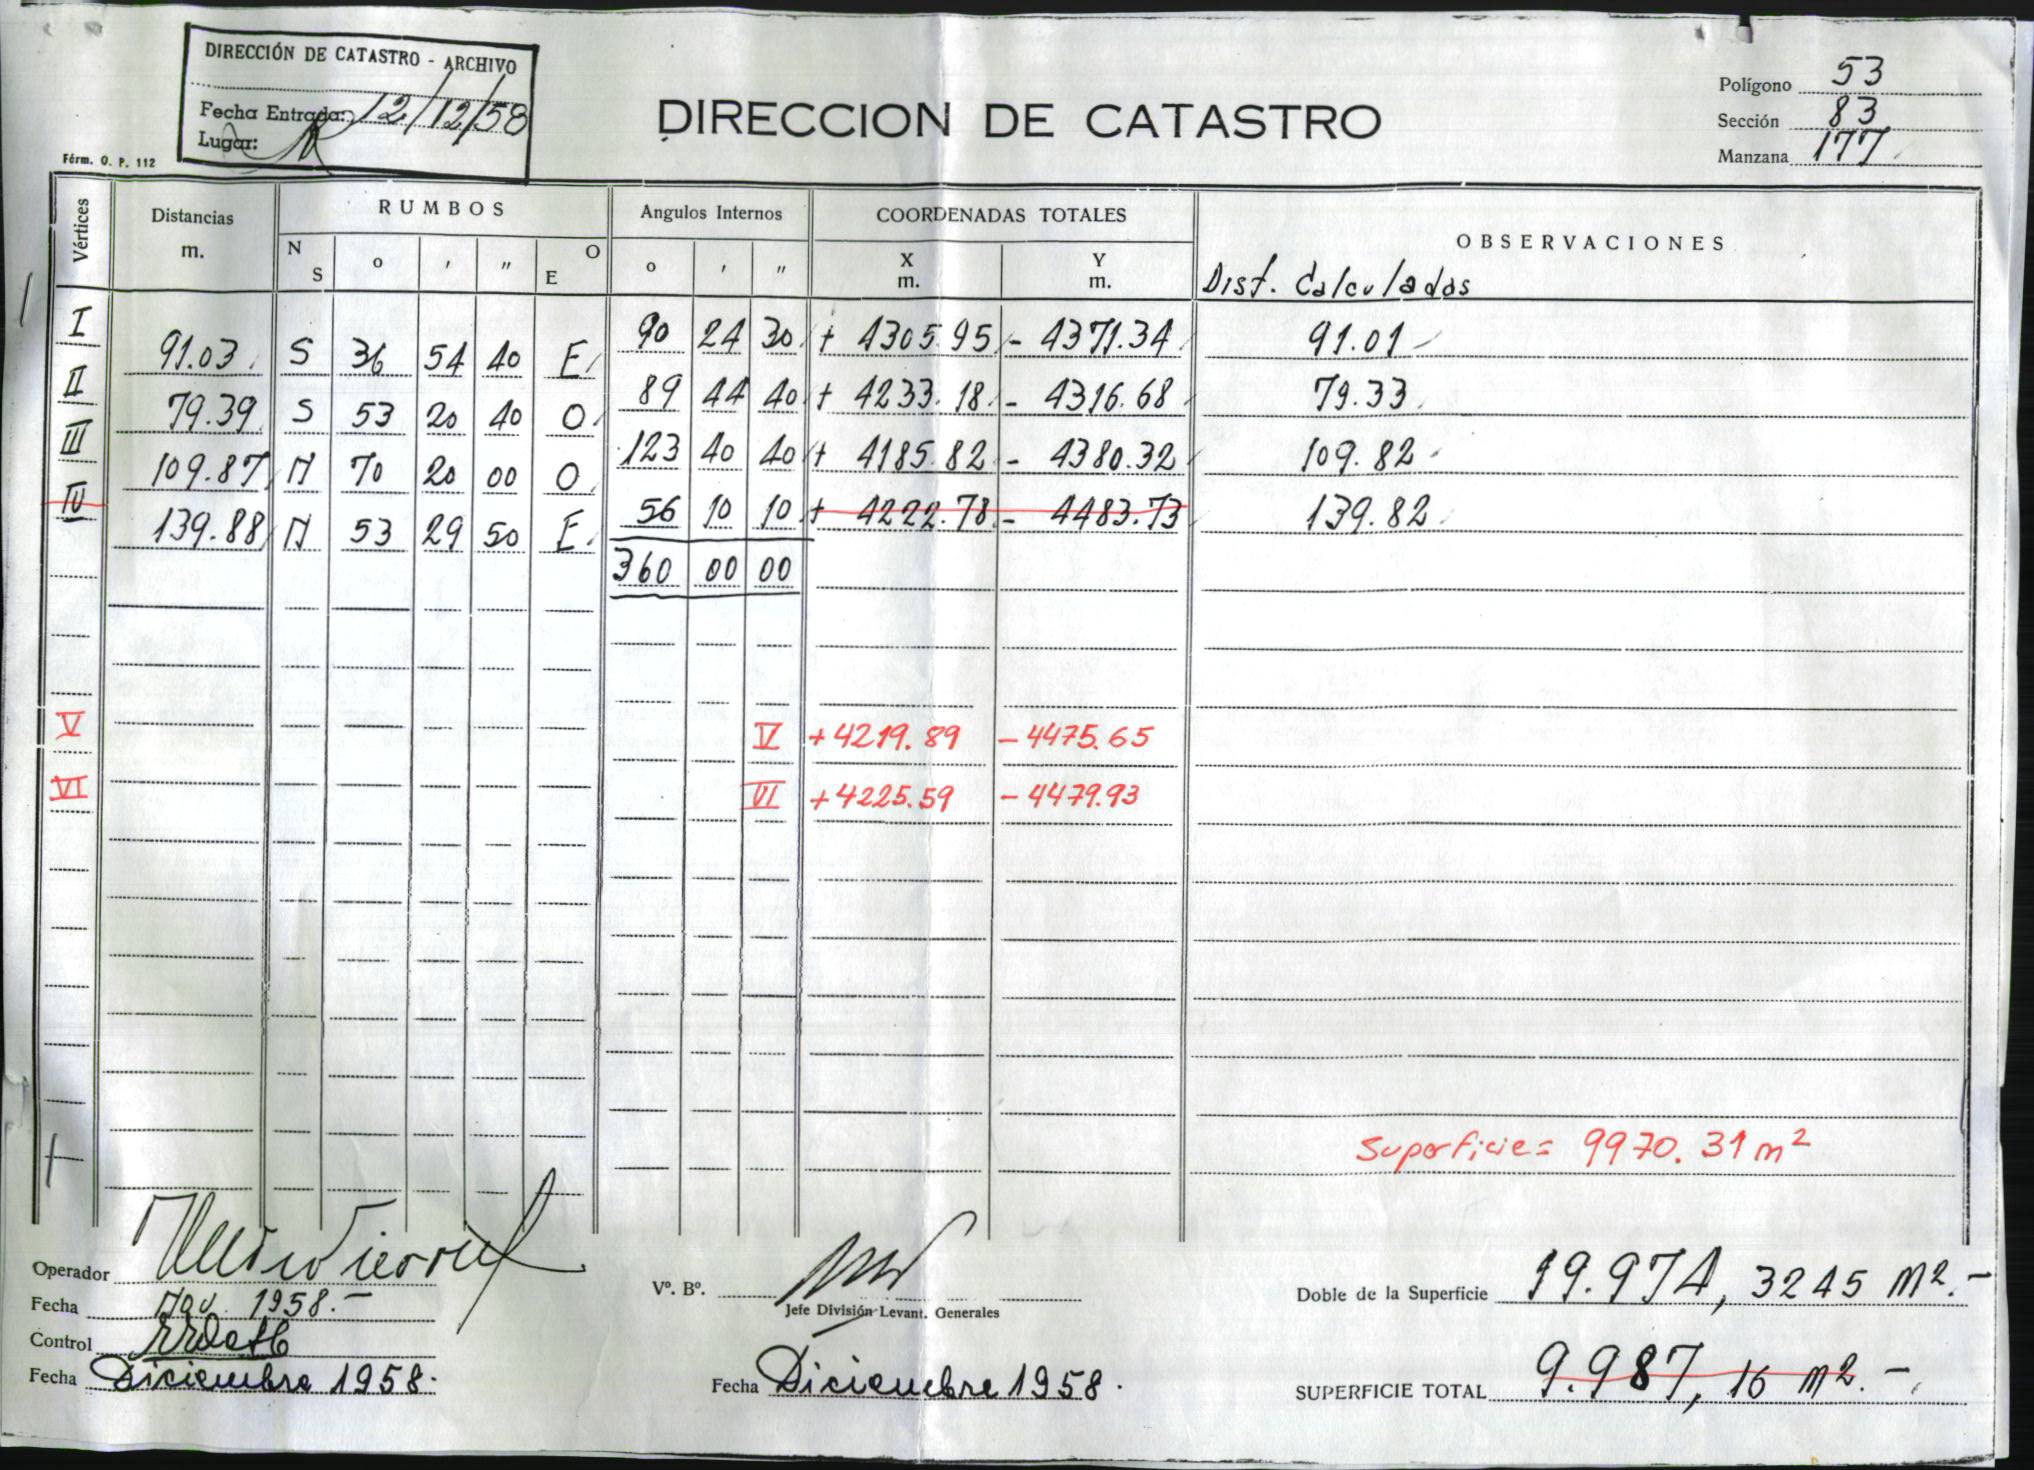 DIRECCIÓN DE CATASTRO - ARCHIVO
Fecha Entrada: 12/12/58
Lugar:
Férm. O. P. 112
DIRECCION DE CATASTRO
Polígono 53
Sección 83
Manzana 177
Vértices
Distancias
m.
RUMBOS
N S ° ' " E O
Angulos Internos
° ' "
COORDENADAS TOTALES
X m. Y m.
OBSERVACIONES
Dist. Calculadas
I 90 24 30 + 4305.95 - 4371.34 91.01
91.03 S 36 54 40 E
II 89 44 40 + 4233.18 - 4316.68 79.33
79.39 S 53 20 40 O
III 123 40 40 + 4185.82 - 4380.32 109.82
109.87 N 70 20 00 O
IV 56 10 10 + 4222.78 - 4483.73 139.82
139.88 N 53 29 50 E
360 00 00
V V + 4219.89 - 4475.65
VI VI + 4225.59 - 4479.93
Superficie = 9970.31 m²
Operador
Fecha Nov. 1958.-
Control
Fecha Diciembre 1958.
Vº. Bº.
Jefe División Levant. Generales
Fecha Diciembre 1958.
Doble de la Superficie 19.974,3245 M².-
SUPERFICIE TOTAL 9.987,16 m².-